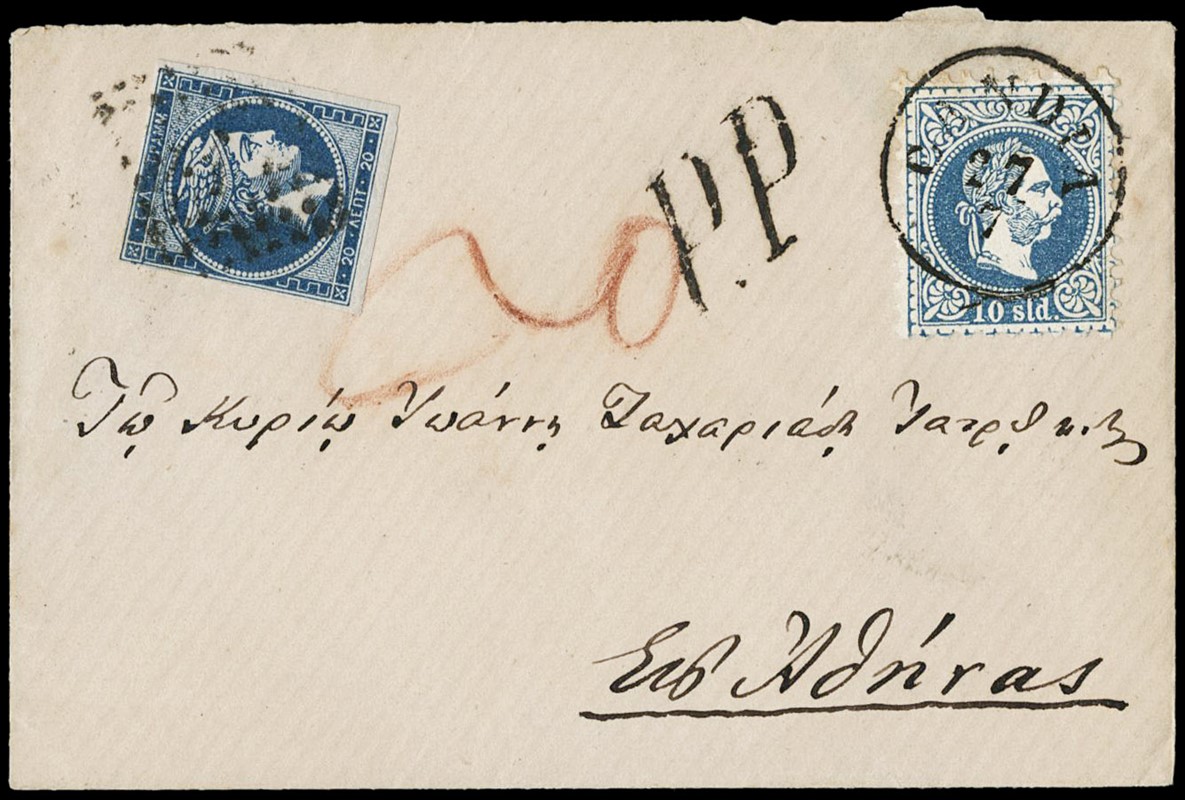 ΕΛΛ. ΓΡΑΜΜ.
20 ΛΕΠΤ. 20
20
P.P.
CANDIA
27
7
10 sld.
20
Τῷ Κυρίῳ Ἰωάννῃ Ζαχαριάδῃ Ἰατρῷ κ.τ.λ.
Εἰς Ἀθήνας